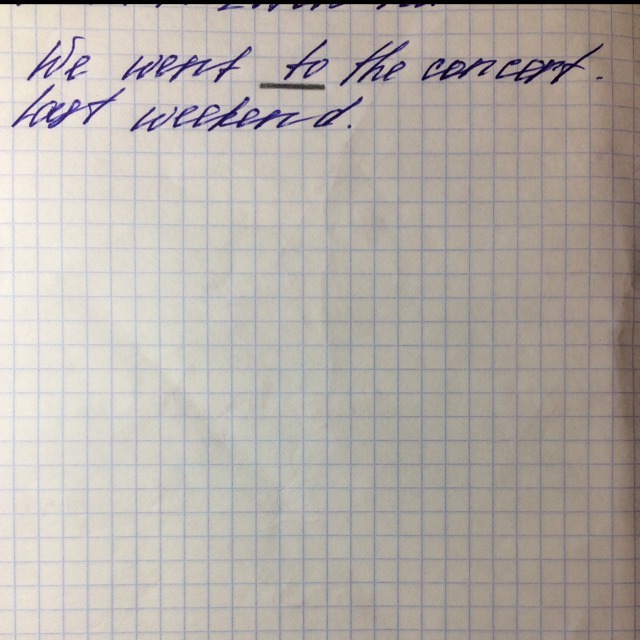 We went to the concert.
last weekend.